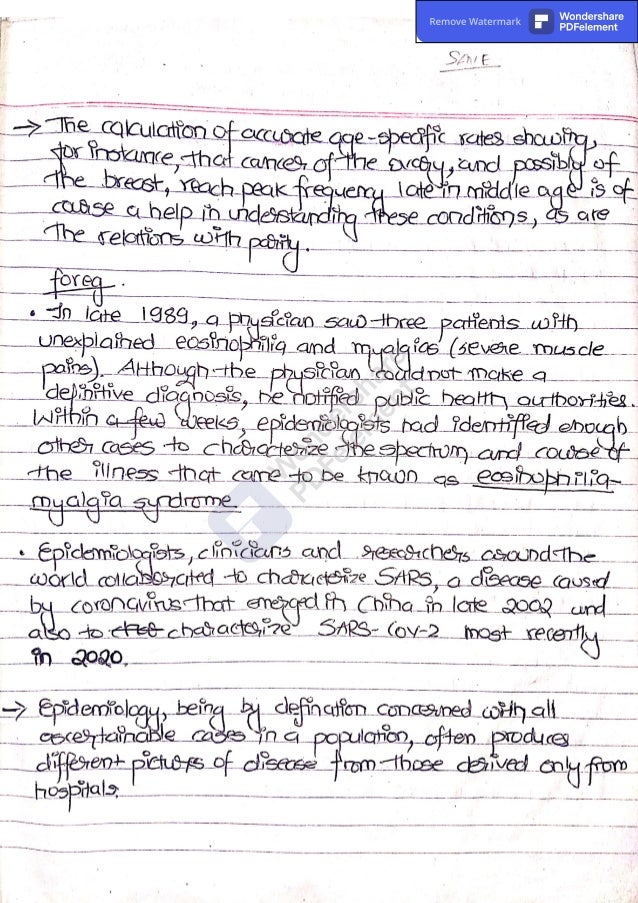 Remove Watermark
Wondershare
PDFelement
→ The calculation of accurate age-specific rates showing,
for instance, that cancer of the ovary, and possibly of
the breast, reach peak frequency late in middle age is of
cause a help in understanding these conditions, as are
the relations with parity.
foreg.
• In late 1989, a physician saw three patients with
unexplained eosinophilia and myalgias (severe muscle
pains). Although the physician could not make a
definitive diagnosis, he notified public health authorities.
Within a few weeks, epidemiologists had identified enough
other cases to characterize the spectrum and course of
the illness that came to be known as eosinophilia-
myalgia syndrome
• Epidemiologists, clinicians and researchers around the
world collaborated to characterize SARS, a disease caused
by coronavirus that emerged in China in late 2002 and
also to characterize SARS-CoV-2 most recently
in 2020.
→ Epidemiology, being by defination concerned with all
ascertainable cases in a population, often produces
different pictures of disease from those derived only from
hospitals.
Wondershare
PDFelement